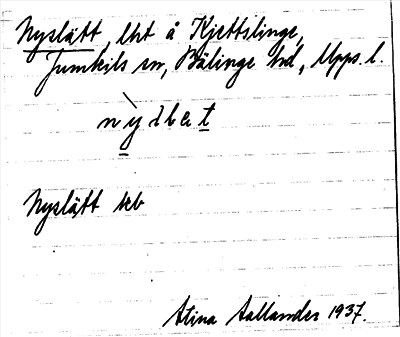 Nyslätt, lht å Kjettslinge,
Jumkils sn, Bälinge hd, Upps. l.
Nyslätt
Stina Aallander 1937.